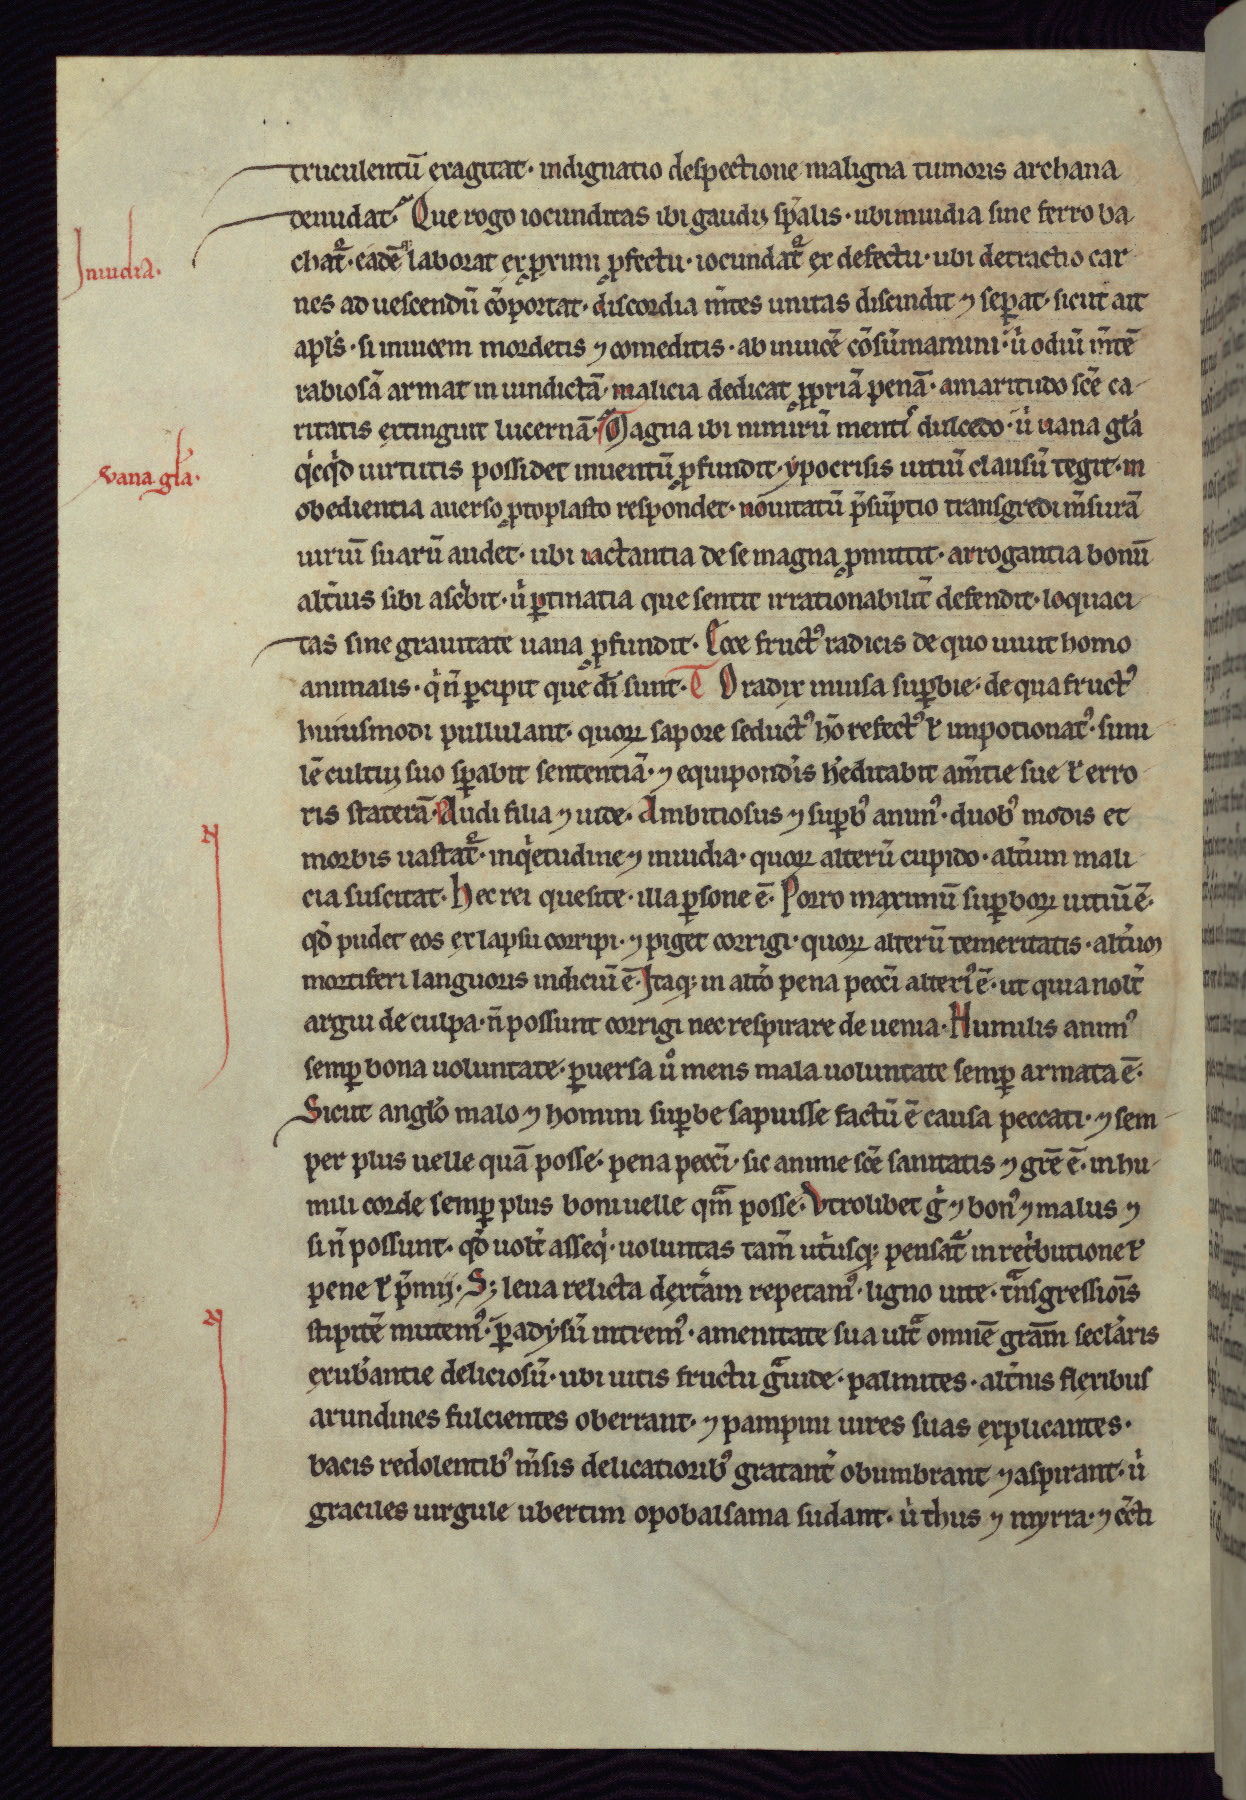 truculentū exagitat· indignatio despectione maligna tumoris archana
denudat· Que rogo iocunditas ibi gaudii sp̄alis· ubi inuidia sine ferro ba
Inuidia.
chat᷑· eadē laborat ex ꝓximi ꝓfectu· iocundat᷑ ex defectu· ubi detractio car
nes ad uescendū cōportat· discordia m̄tes unitas discindit ⁊ seꝑat· sicut ait
apl̄s· si inuicem mordetis ⁊ comeditis· ab inuicē cōsūmamini· u̇ odiū m̄tē
rabiosā armat in uindictā· malicia dedicat ꝓpriā penā· amaritudo sc̄e ca
ritatis extinguit lucernā· Magna ibi nimirū mentis dulcedo· u̇ uana gl̄a
vana gl̄a.
qicq̇d uirtutis possidet inuentū ꝓfundit· ypocrisis uitiū clausū tegit· in
obedientia auerso ꝓtoplasto respondet· nouitatū p̄sūptio transgredi m̄surā
uiriū suarū audet· ubi iactantia de se magna ꝓmittit· arrogantia bonū
alt̄ius sibi asc̄bit· u̇ ꝑtinatia que sentit irrationabilit̄ defendit· loquaci
tas sine grauitate uana ꝓfundit· Ecce fruct᷒ radicis de quo uiuit homo
animalis· q̇ n̄ ꝑcipit que dī sunt· O radix inuisa suꝑbie· de qua fruct᷒
huiusmodi pullulant· quoꝝ sapore seduct᷒ hō refect᷒ ⁊ impotionat᷒· simi
lē cultui suo sꝑabit sententiā· ⁊ equiponderis h̄editabit am̄tie sue ⁊ erro
ris staterā· Audi filia ⁊ uide. Ambitiosus ⁊ suꝑb᷒ anim᷒· duob᷒ modis et
morbis uastat᷑· inq̇etudine ⁊ inuidia· quoꝝ alterū cupido· alt̄um mali
cia suscitat· hec rei quesite· illa ꝑsone ē· Porro maximū suꝑboꝝ uitiū ē·
qd̄ pudet eos ex lapsu corripi· ⁊ piget corrigi· quoꝝ alterū temeritatis· alt̄um
mortiferi languoris indiciū ē· Itaqꝫ in alt̄o pena pecc̄i alteri᷒ ē· ut quia nolt̄
argui de culpa· n̄ possunt corrigi nec respirare de uenia· Humilis anim᷒
semꝑ bona uoluntate· ꝑuersa u̇o mens mala uoluntate semꝑ armata ē·
Sicut angl̄o malo ⁊ homini suꝑbe sapuisse factū ē causa peccati· ⁊ sem
per plus uelle quā posse· pena pecc̄i· sic anime sc̄e sanitatis ⁊ gr̄e ē· in hu
mili corde semꝑ plus boni uelle qm̄ posse· Vtrolibet g̊ ⁊ bon᷒ ⁊ malus ⁊
si n̄ possunt· qd̄ uolt̄ asseq̇· uoluntas tam̄ ut̄usqꝫ pensat᷑ in ret̄butione ⁊
pene ⁊ p̄mij· Sꝫ leua relicta dext̄am repetam᷒· ligno uite· t̄nsgressiōis
stipitē mutem᷒· ꝑadysū intrem᷒· amenitate sua ult̄ omnē gr̄am secl̄aris
exub̄antie deliciosū· ubi uitis fructu g̃uide· palmites· alt̄ius flexibus
arundines fulcientes oberrant· ⁊ pampini uires suas explicantes·
bacis redolentib᷒ m̄sis delicatiorib᷒ gratant̄ obumbrant ⁊ aspirant· u̇
graciles uirgule ubertim opobalsama sudant· u̇ thus ⁊ myrra· ⁊ cc̄ti